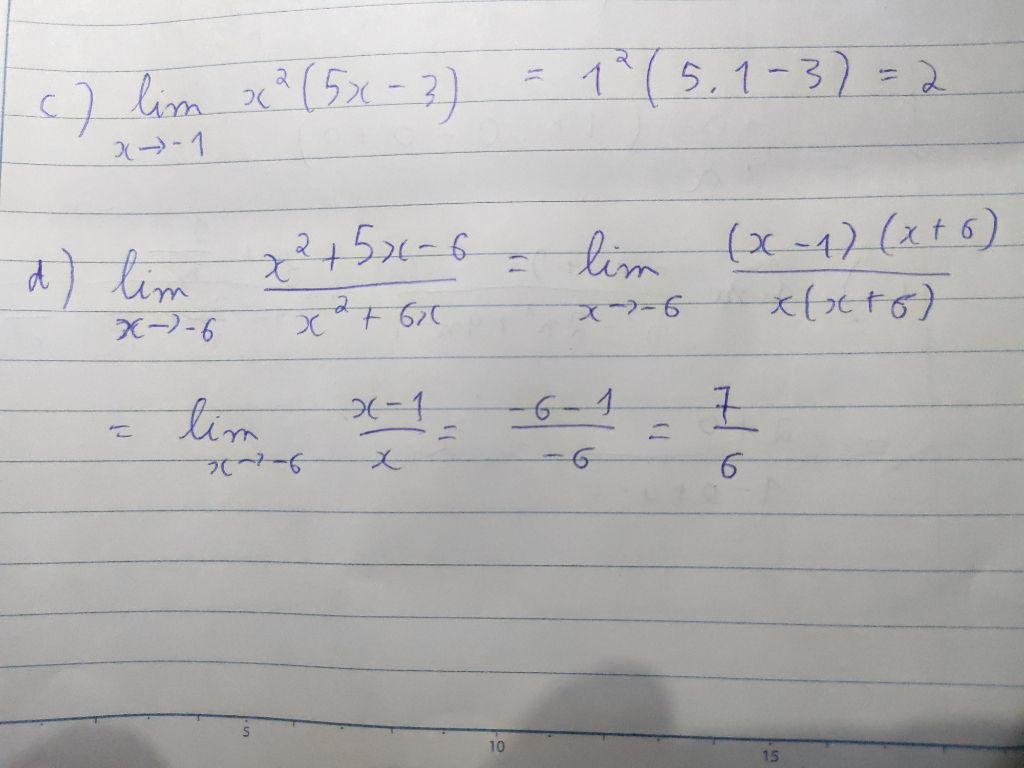 c) lim x→-1 x²(5x-3) = 1²(5.1-3) = 2
d) lim x→-6 (x²+5x-6)/(x²+6x) = lim x→-6 ((x-1)(x+6))/(x(x+6))
= lim x→-6 (x-1)/x = (-6-1)/(-6) = 7/6
5 10 15